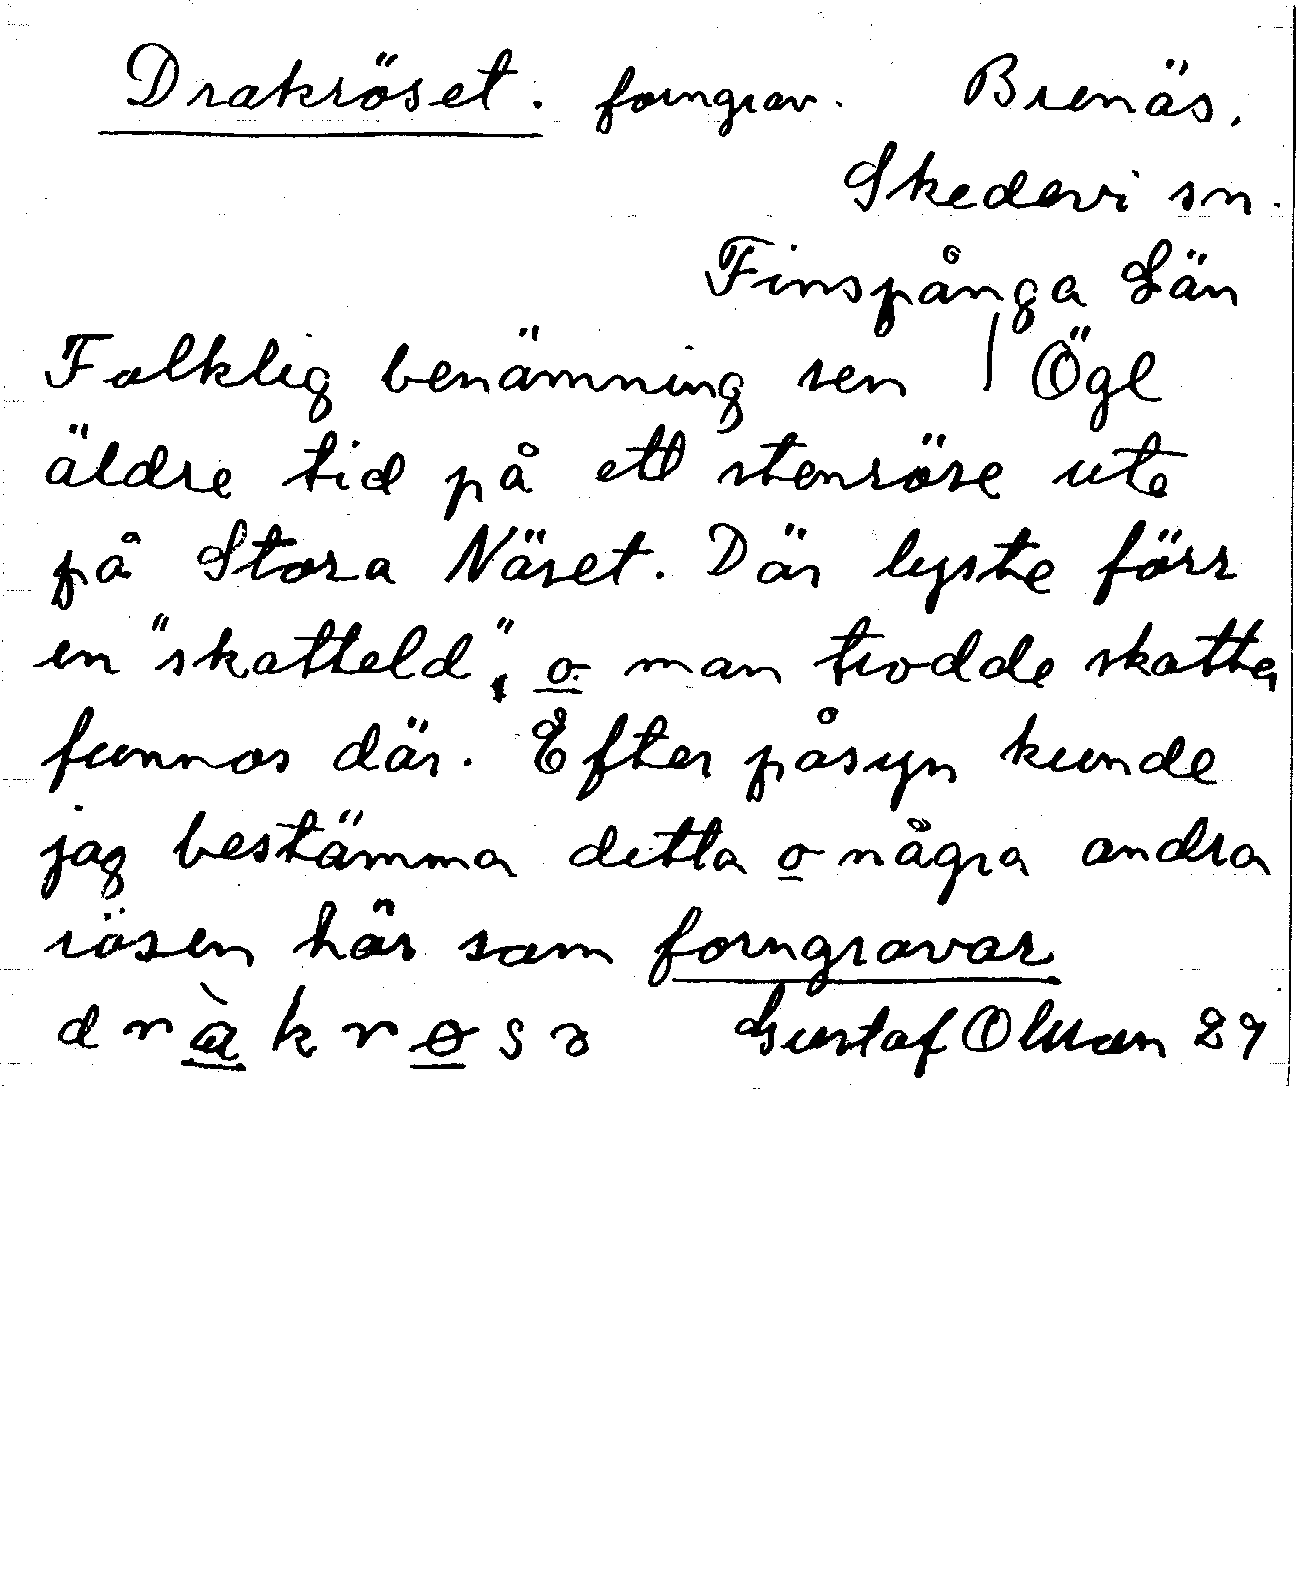 Drakröset. forngrav. Brenäs.
Skedevi sn.
Finspånga Län
Folklig benämning sen | Ögl
äldre tid på ett stenröse ute
på Stora Näset. Där lyste förr
en "skatteld", o. man trodde skatter
funnos där. Efter påsyn kunde
jag bestämma detta o några andra
rösen här som forngravar
Gustaf Olsson 29